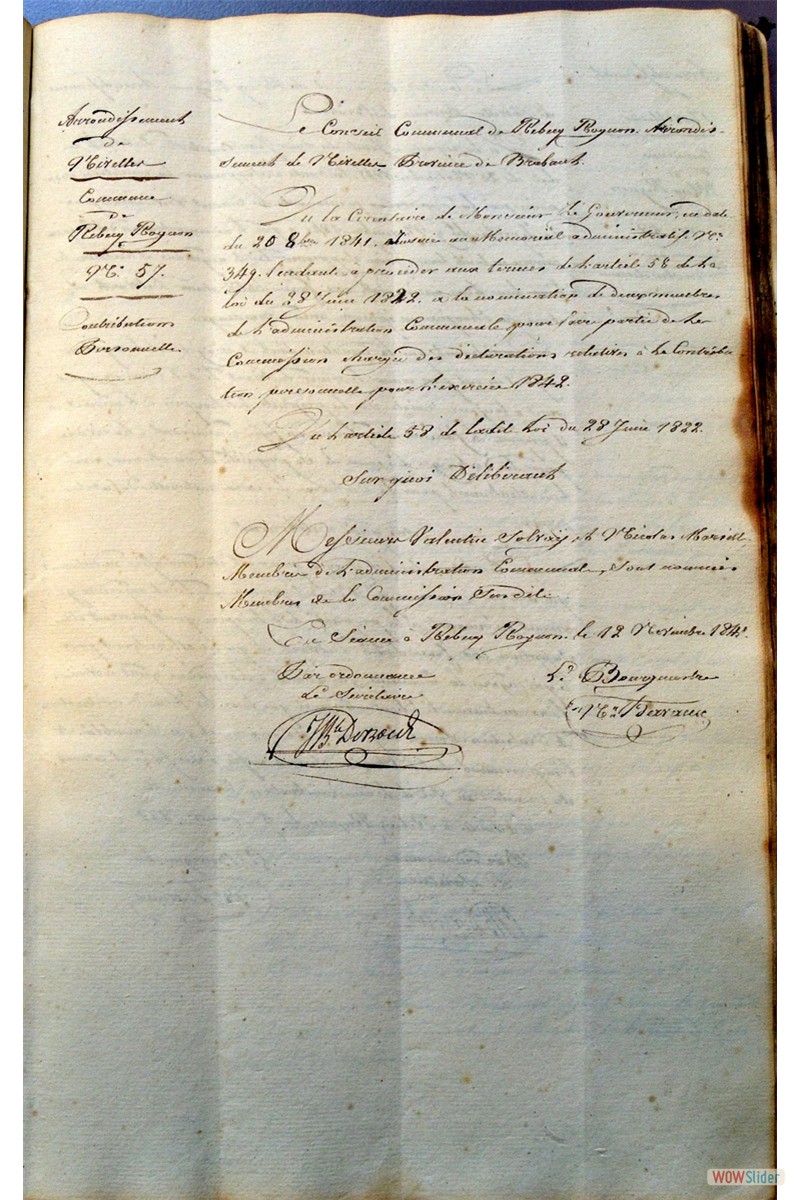 Arrondissement
de
Nivelles
Commune
de
Rebecq Rognon
N.º 57.
Contributions
Personnelles
Le Conseil Communal de Rebecq Rognon, Arrondis-
sement de Nivelles, Province de Brabant.
Vu la Circulaire de Monsieur le Gouverneur, en date
du 20 8bre 1841. Inserée au Mémorial administratif. Nº
349. tendant à procéder aux termes de l'article 58 de la
loi du 28 Juin 1822. a la nomination de deux membres
de l'administration Communale pour faire partie de la
Commission chargée des déclarations relatives à la Contribu-
tion personnelle pour l'exercice 1842.
Vu l'article 58 de ladite Loi du 28 Juin 1822.
Sur quoi Délibérant
Messieurs Valentin Solvay et Nicolas
Membres de l'administration Communale, sont nommés
Membres de la Commission Susdite.
En Séance à Rebecq Rognon. le 12 Novembre 1841.
Par ordonnance
Le Secrétaire
Le Bourgmestre